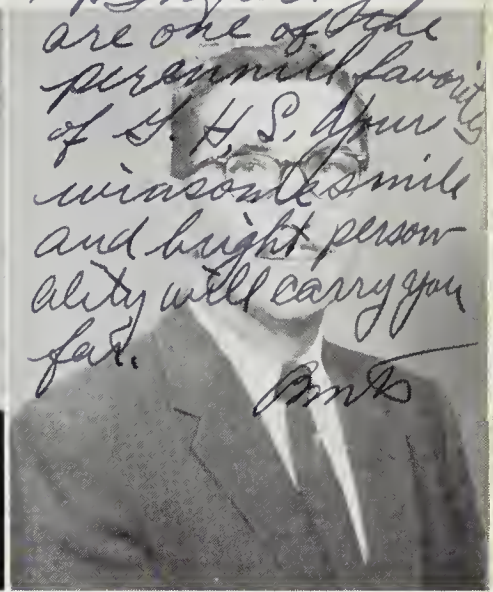 are one of the
perennill favorits
of G. H. S. Your
winsome smile
and bright person
ality will carry you
far.